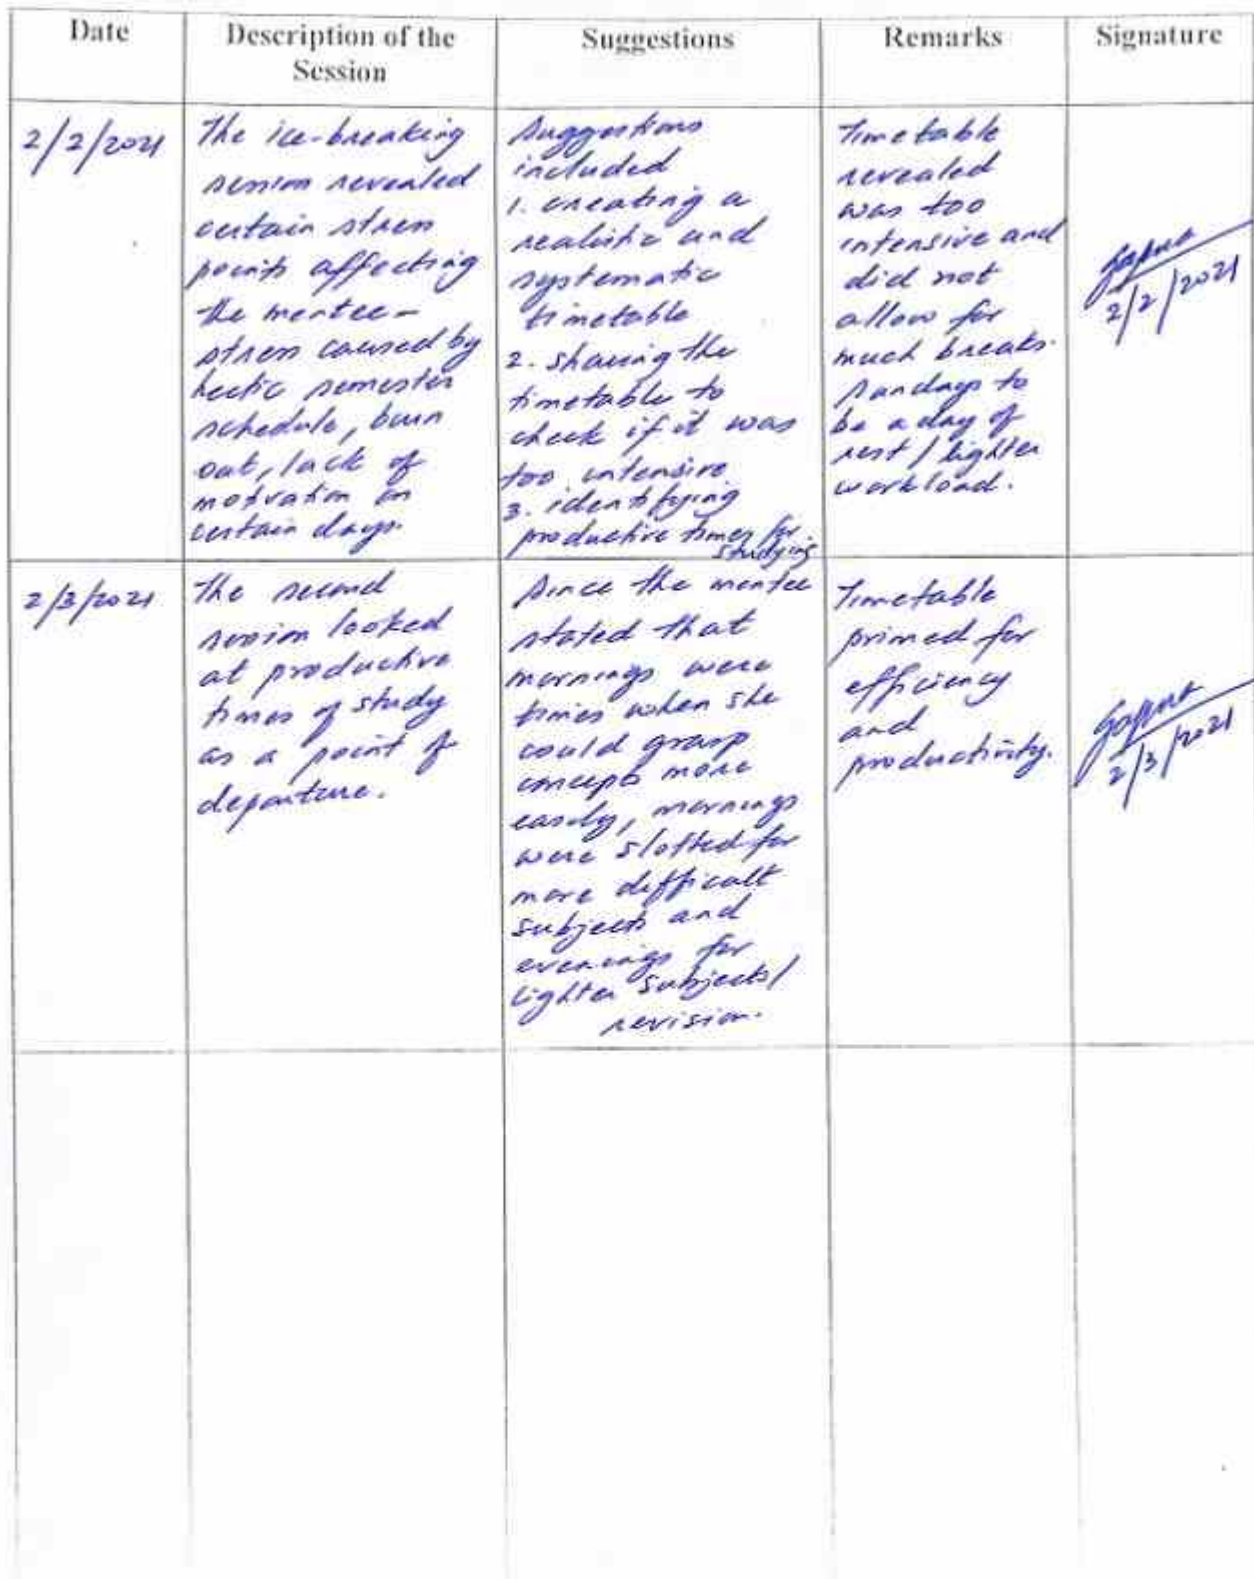 Date
Description of the
Session
Suggestions
Remarks
Signature
2/2/2021
The ice-breaking
session revealed
certain stress
points affecting
the mentee -
stress caused by
hectic semester
schedule, burn
out, lack of
motivation on
certain days.
Suggestions
included
1. creating a
realistic and
systematic
timetable
2. sharing the
timetable to
check if it was
too intensive
3. identifying
productive times for
studying
Timetable
revealed
was too
intensive and
did not
allow for
much breaks.
Sundays to
be a day of
rest / lighter
workload.
2/2/2021
2/3/2021
The second
session looked
at productive
times of study
as a point of
departure.
Since the mentee
stated that
mornings were
times when she
could grasp
concepts more
easily, mornings
were slotted for
more difficult
subjects and
evenings for
lighter subjects/
revision.
Timetable
primed for
efficiency
and
productivity.
2/3/2021